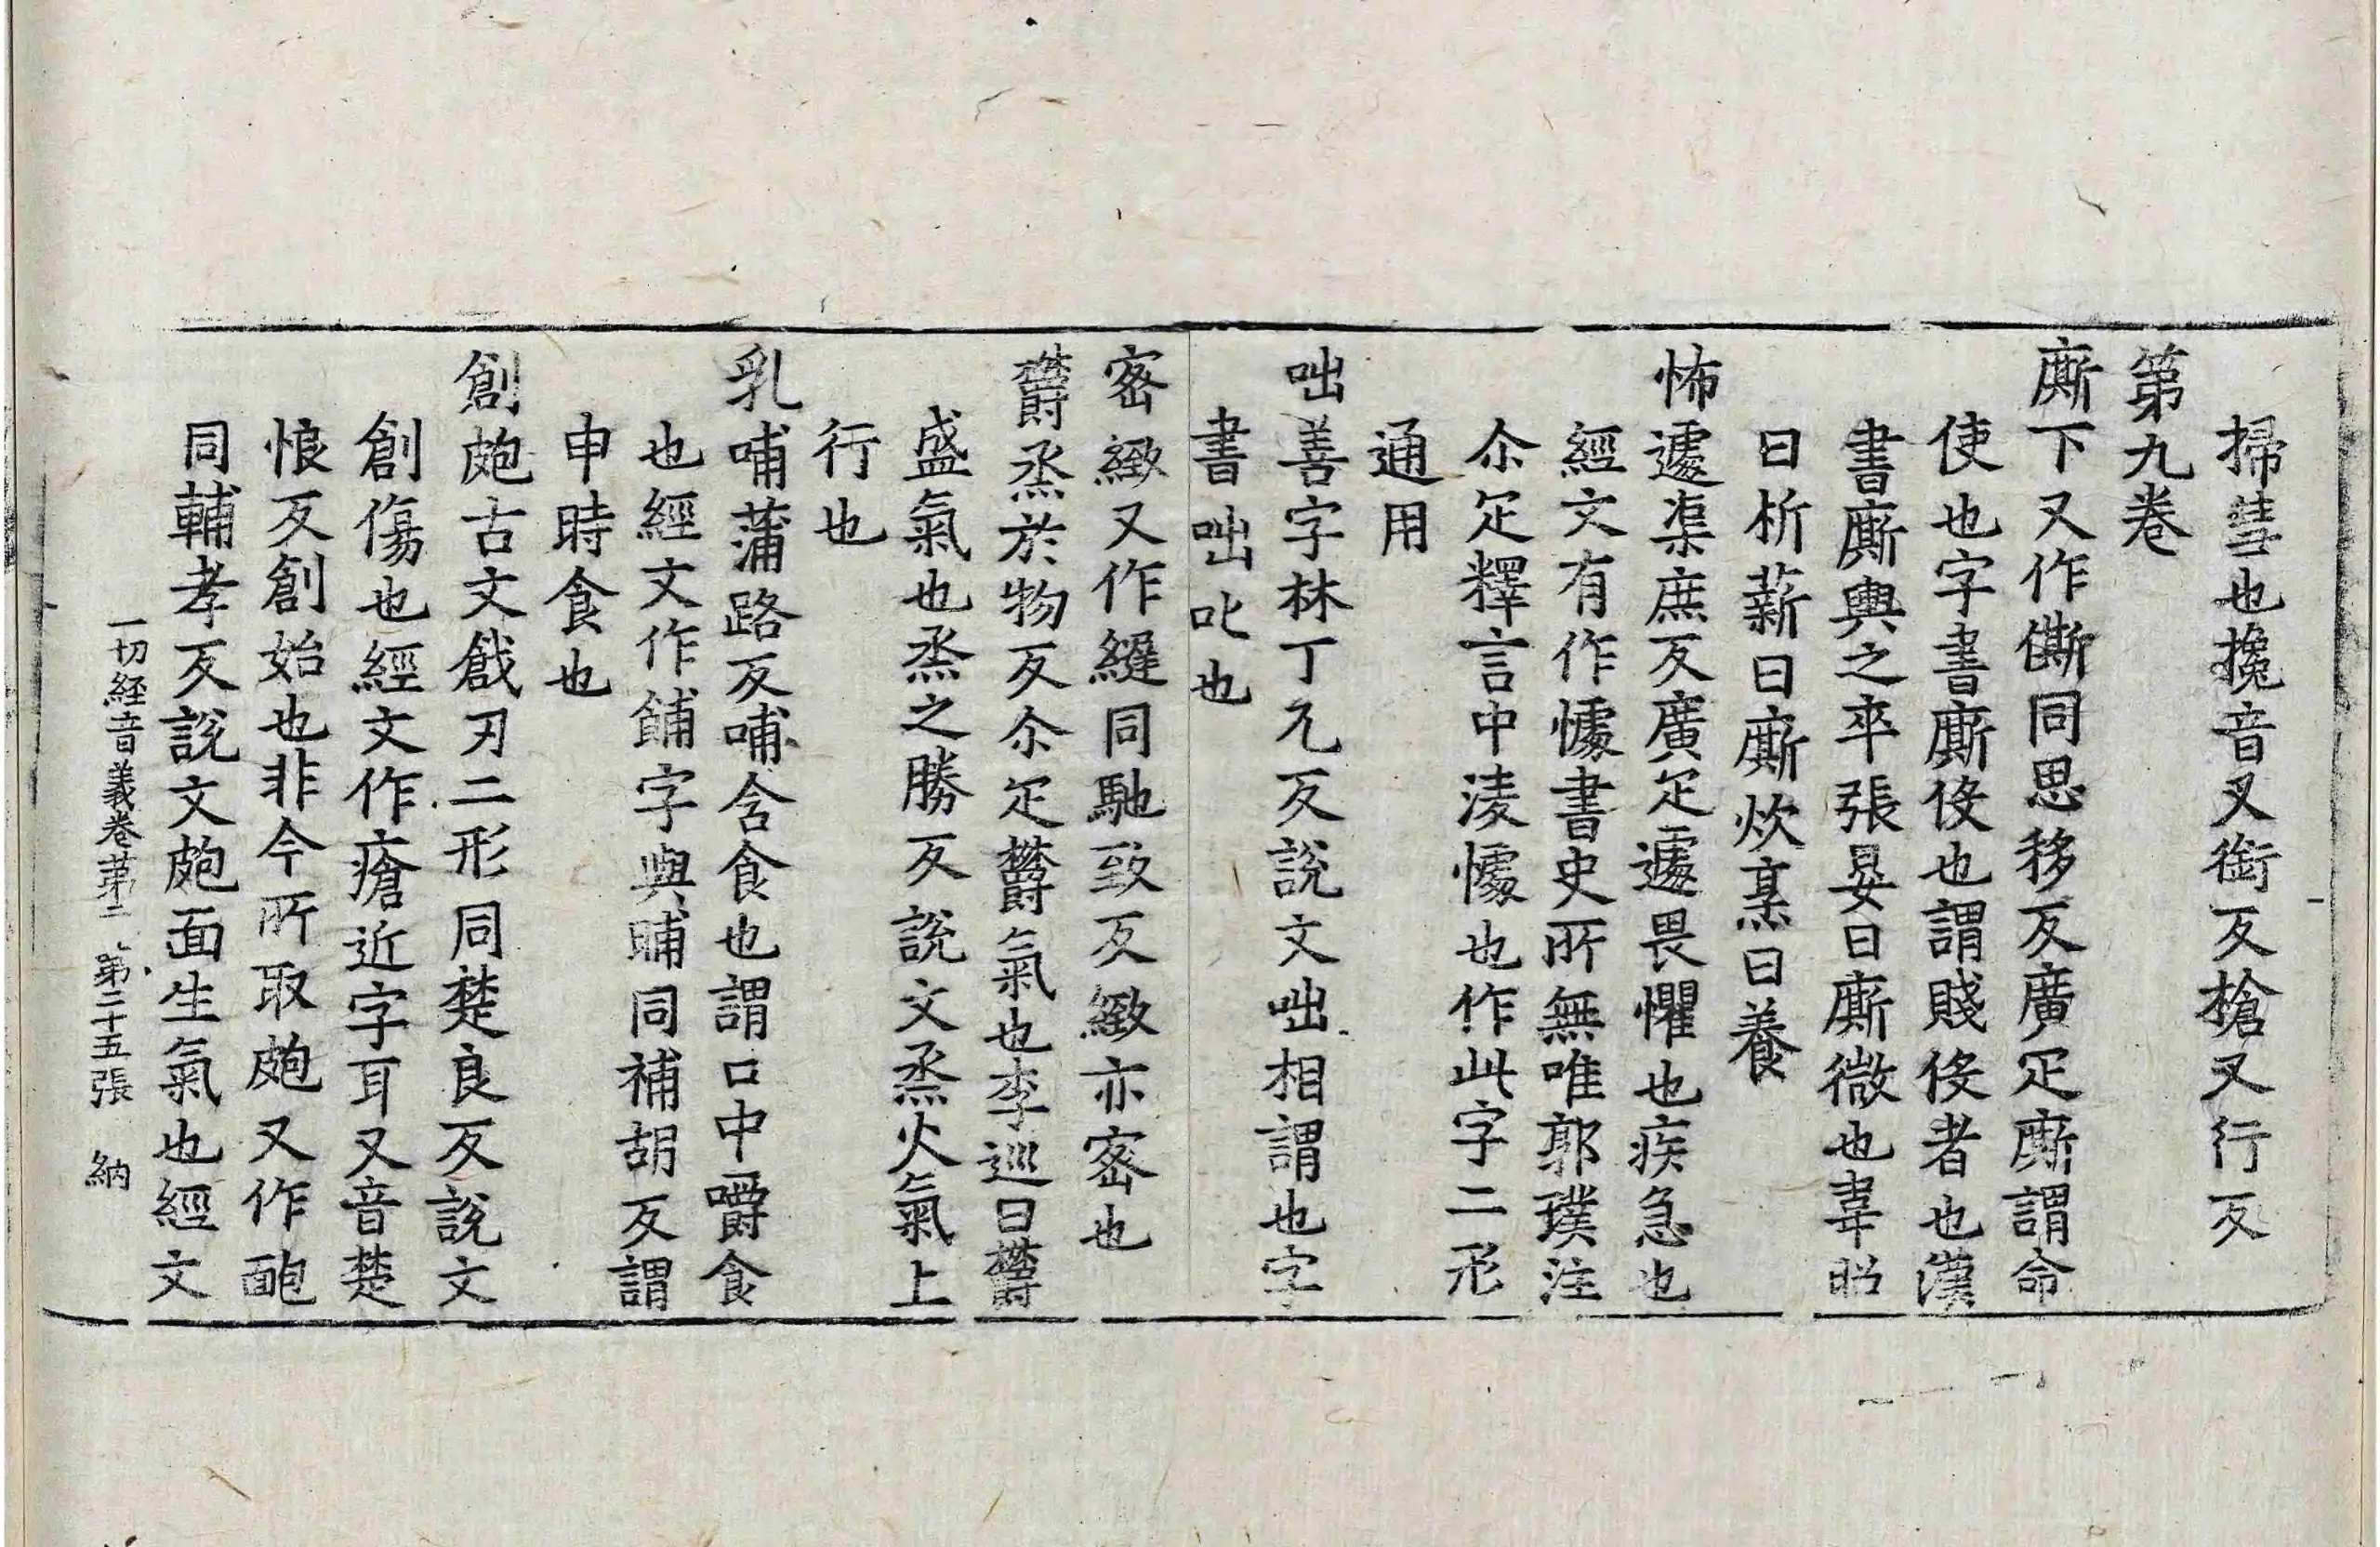 掃彗也攙音叉銜反槍又行反
第九卷
廝下又作㒋同思移反廣疋廝謂命
使也字書廝伇也謂賤伇者也漢
書廝輿之卒張晏曰廝微也韋昭
曰析薪曰廝炊烹曰養
怖遽渠庶反廣疋遽畏懼也疾急也
經文有作懅書史所無唯郭璞注
尒疋釋言中淩懅也作此字二形
通用
咄善字林丁兀反說文咄相謂也字
書咄叱也
密緻又作緻同馳致反緻亦密也
欝烝於物反尒疋欝氣也李巡曰欝
盛氣也烝之勝反說文烝火氣上
行也
乳哺蒲路反哺含食也謂口中嚼食
也經文作餔字與晡同補胡反謂
申時食也
創皰古文戧刃二形同楚良反說文
創傷也經文作瘡近字耳又音楚
恨反創始也非今所取皰又作靤
同輔孝反說文皰面生氣也經文
一切經音義卷第二 第二十五張 納